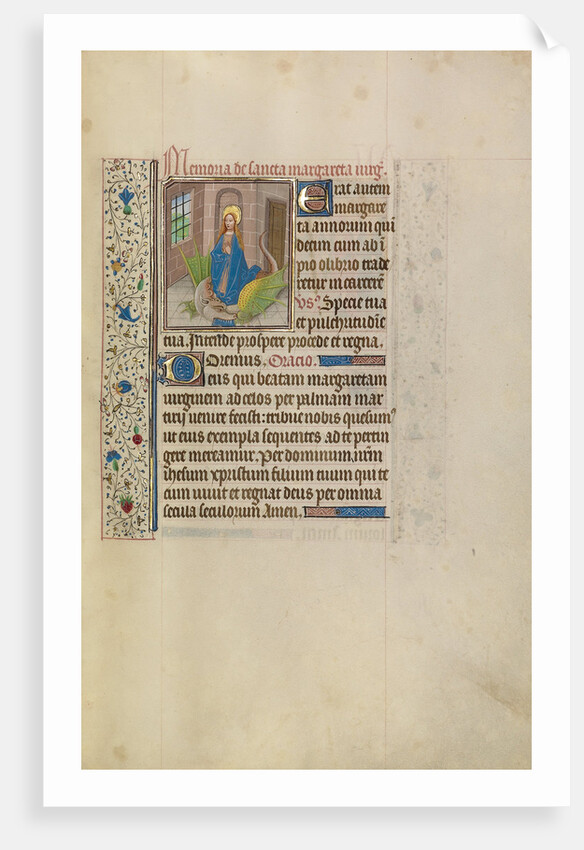 Memoria de sancta margareta uirg.
Erat autem
margare
ta annorum qui
decim cum ab i
pio olibrio trade
retur in carcerē
vs? Specie tua
et pulchritudīe
tua. Intende prospere procede et regna.
Oremus. Oracio.
Deus qui beatam margaretam
uirginem ad celos per palmam mar
tirij uenire fecisti: tribue nobis quesum?
ut eius exempla sequentes ad te pertin
gere mereamur. Per dominum. nr̄m
ihesum xpristum filium tuum qui te
cum uiuit et regnat deus per omnia
secula seculorum Amen.